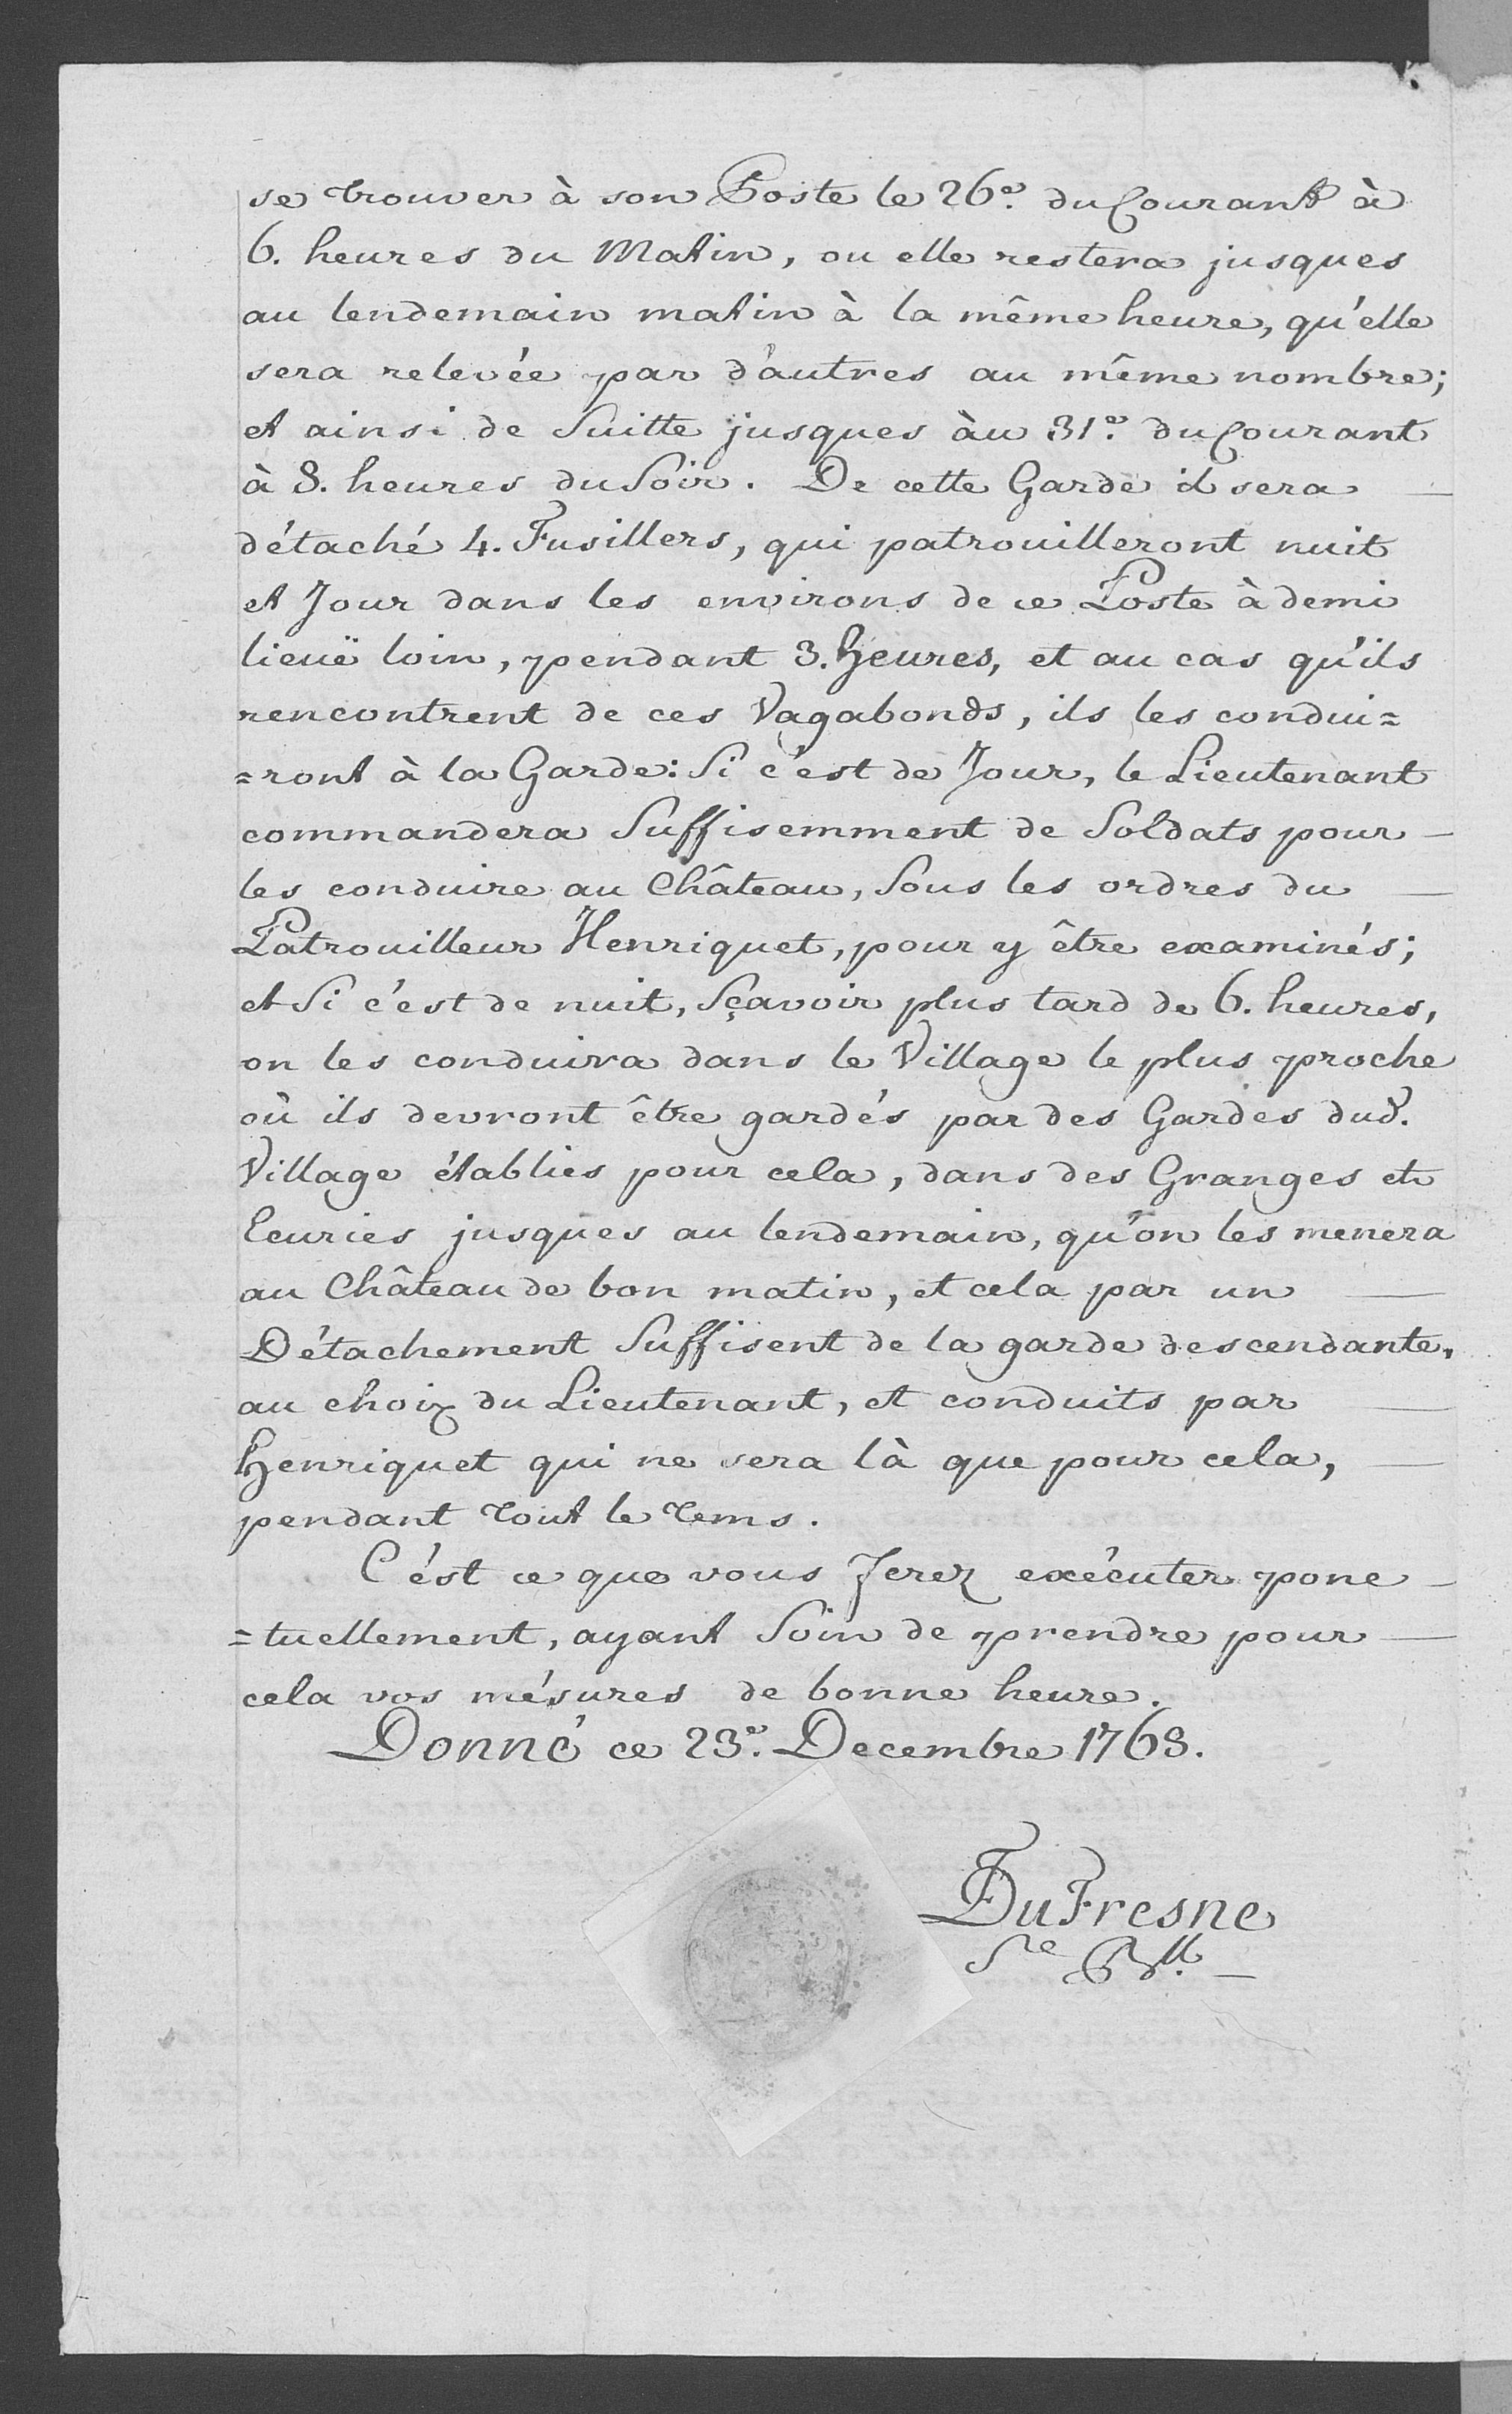 se trouver à son Poste le 26.e du Courant à
6. heures du Matin, ou elle restera jusques
au lendemain matin à la même heure, qu'elle
sera relevée par d'autres au même nombre;
et ainsi de Suitte jusques àu 31.e du Courant
à 8. heures du Soir. De cette Garde il sera
détaché 4. Fusillers, qui patrouilleront nuit
et Jour dans les environs de ce Poste à demi
lieuë loin, pendant 3. Heures, et au cas qu'ils
rencontrent de ces Vagabonds, ils les condui=
=ront à la Garde: Si c'est de Jour, le Lieutenant
commandera Suffisemment de Soldats pour
les conduire au Château, Sous les ordres du
Patrouilleur Henriquet, pour y être examinés;
et Si c'est de nuit, Sçavoir plus tard de 6. heures,
on les conduira dans le Village le plus proche
où ils devront être gardés par des Gardes dud.
Village établies pour cela, dans des Granges et
Ecuries jusques au lendemain, qu'on les menera
au Château de bon matin, et cela par un
Détachement Suffisent de la garde descendante,
au choix du Lieutenant, et conduits par
Henriquet qui ne sera là que pour cela,
pendant tout le tems.
C'ést ce que vous ferez exécuter ponc
=tuellement, ayant Soin de prendre pour
cela vos mésures de bonne heure.
Donné ce 23.e Decembre 1768.
DuFresne